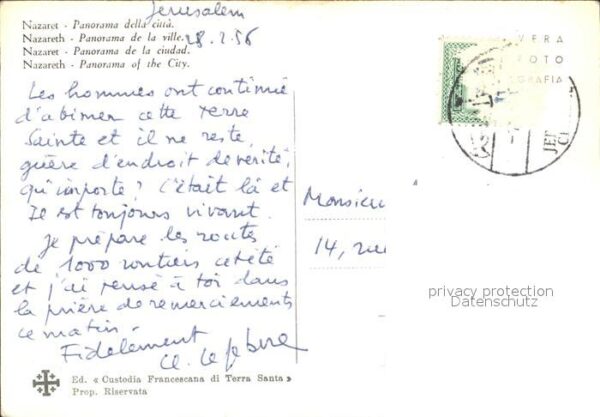 Jerusalem
Nazaret - Panorama della città.
Nazareth - Panorama de la ville.
28.2.56
Nazaret - Panorama de la ciudad.
Nazareth - Panorama of the City.
VERA
FOTO
GRAFIA
Les hommes ont continué
d'abimer cette terre
Sainte et il ne reste
guère d'endroit de vérité,
qu'importe? C'était là et
Il est toujours vivant.
Je prépare les routes
de 1000 routiers cet été
et j'ai pensé à toi dans
la prière de remerciements
ce matin.
Fidèlement
Cl. Lefebvre
Monsieur
14, rue
privacy protection
Datenschutz
Ed. « Custodia Francescana di Terra Santa »
Prop. Riservata